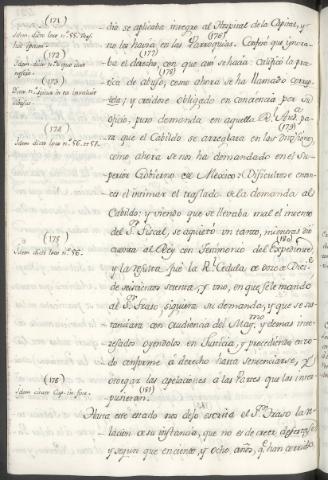 (171)
Idem dicto loco n.º 55.
(172)
(173)
(174)
Idem dicto loco n.º 56. et 57.
(175)
Idem dicto loco n.º 56.
(176)
Idem citato Cap. in fine.
dio se aplicaba integro al Hospital de la Capital, y
no las havia en las Parroquias. Confesó que ignora-
ba el derecho, con que aun se hacia. Calificó la prac-
tica de abuso, como ahora se ha llamado
y creidose obligado en conciencia por su
oficio, puso demanda en aquella R.l Aud.a pa-
ra que el Cabildo se arreglara en las Divisiones,
como ahora se nos ha demandado en el Su-
perior Gobierno de Mexico. Dificultose enton-
ces el intimar el traslado de la demanda al
Cabildo; y viendo que se llevaba mal el intento
del S.r Fiscal, se aquietó un tanto, mientras dio
cuenta al Rey con Testimonio del Expediente,
y la resulta fué la R.l Cedula de once de Dici.e
de seiscientos setenta, y uno, en que se le mandó
al S.r Fraso, siguiera su demanda, y que se sus-
tanciara con audiencia del May.mo y demas inte-
resados oyendolos en Justicia, y procediendo en to-
do conforme á derecho hasta sentenciarse, y
otorgar las apelaciones á las Partes que las inter-
pusieran.
(177)
(178)
(179)
(180)
(181)
Hasta este estado nos dejó escrita el S.r Fraso la re-
lacion de su instancia, que no es de creer dejase
y seguir en ciento, y ocho años, q.e han corrido